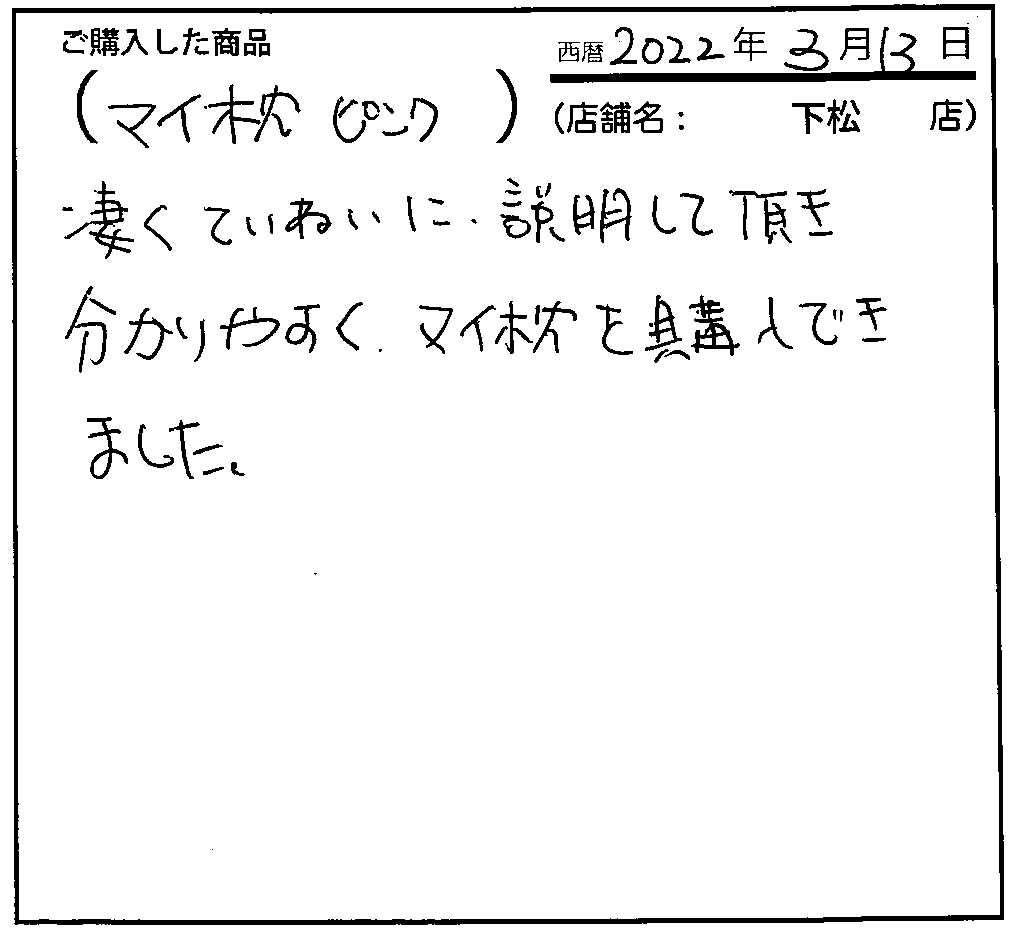 ご購入した商品
西暦 2022年 3月13日
(マイ枕 ピンク)
(店舗名: 下松 店)
凄くていねいに、説明して頂き
分かりやすく、マイ枕を購入でき
ました。